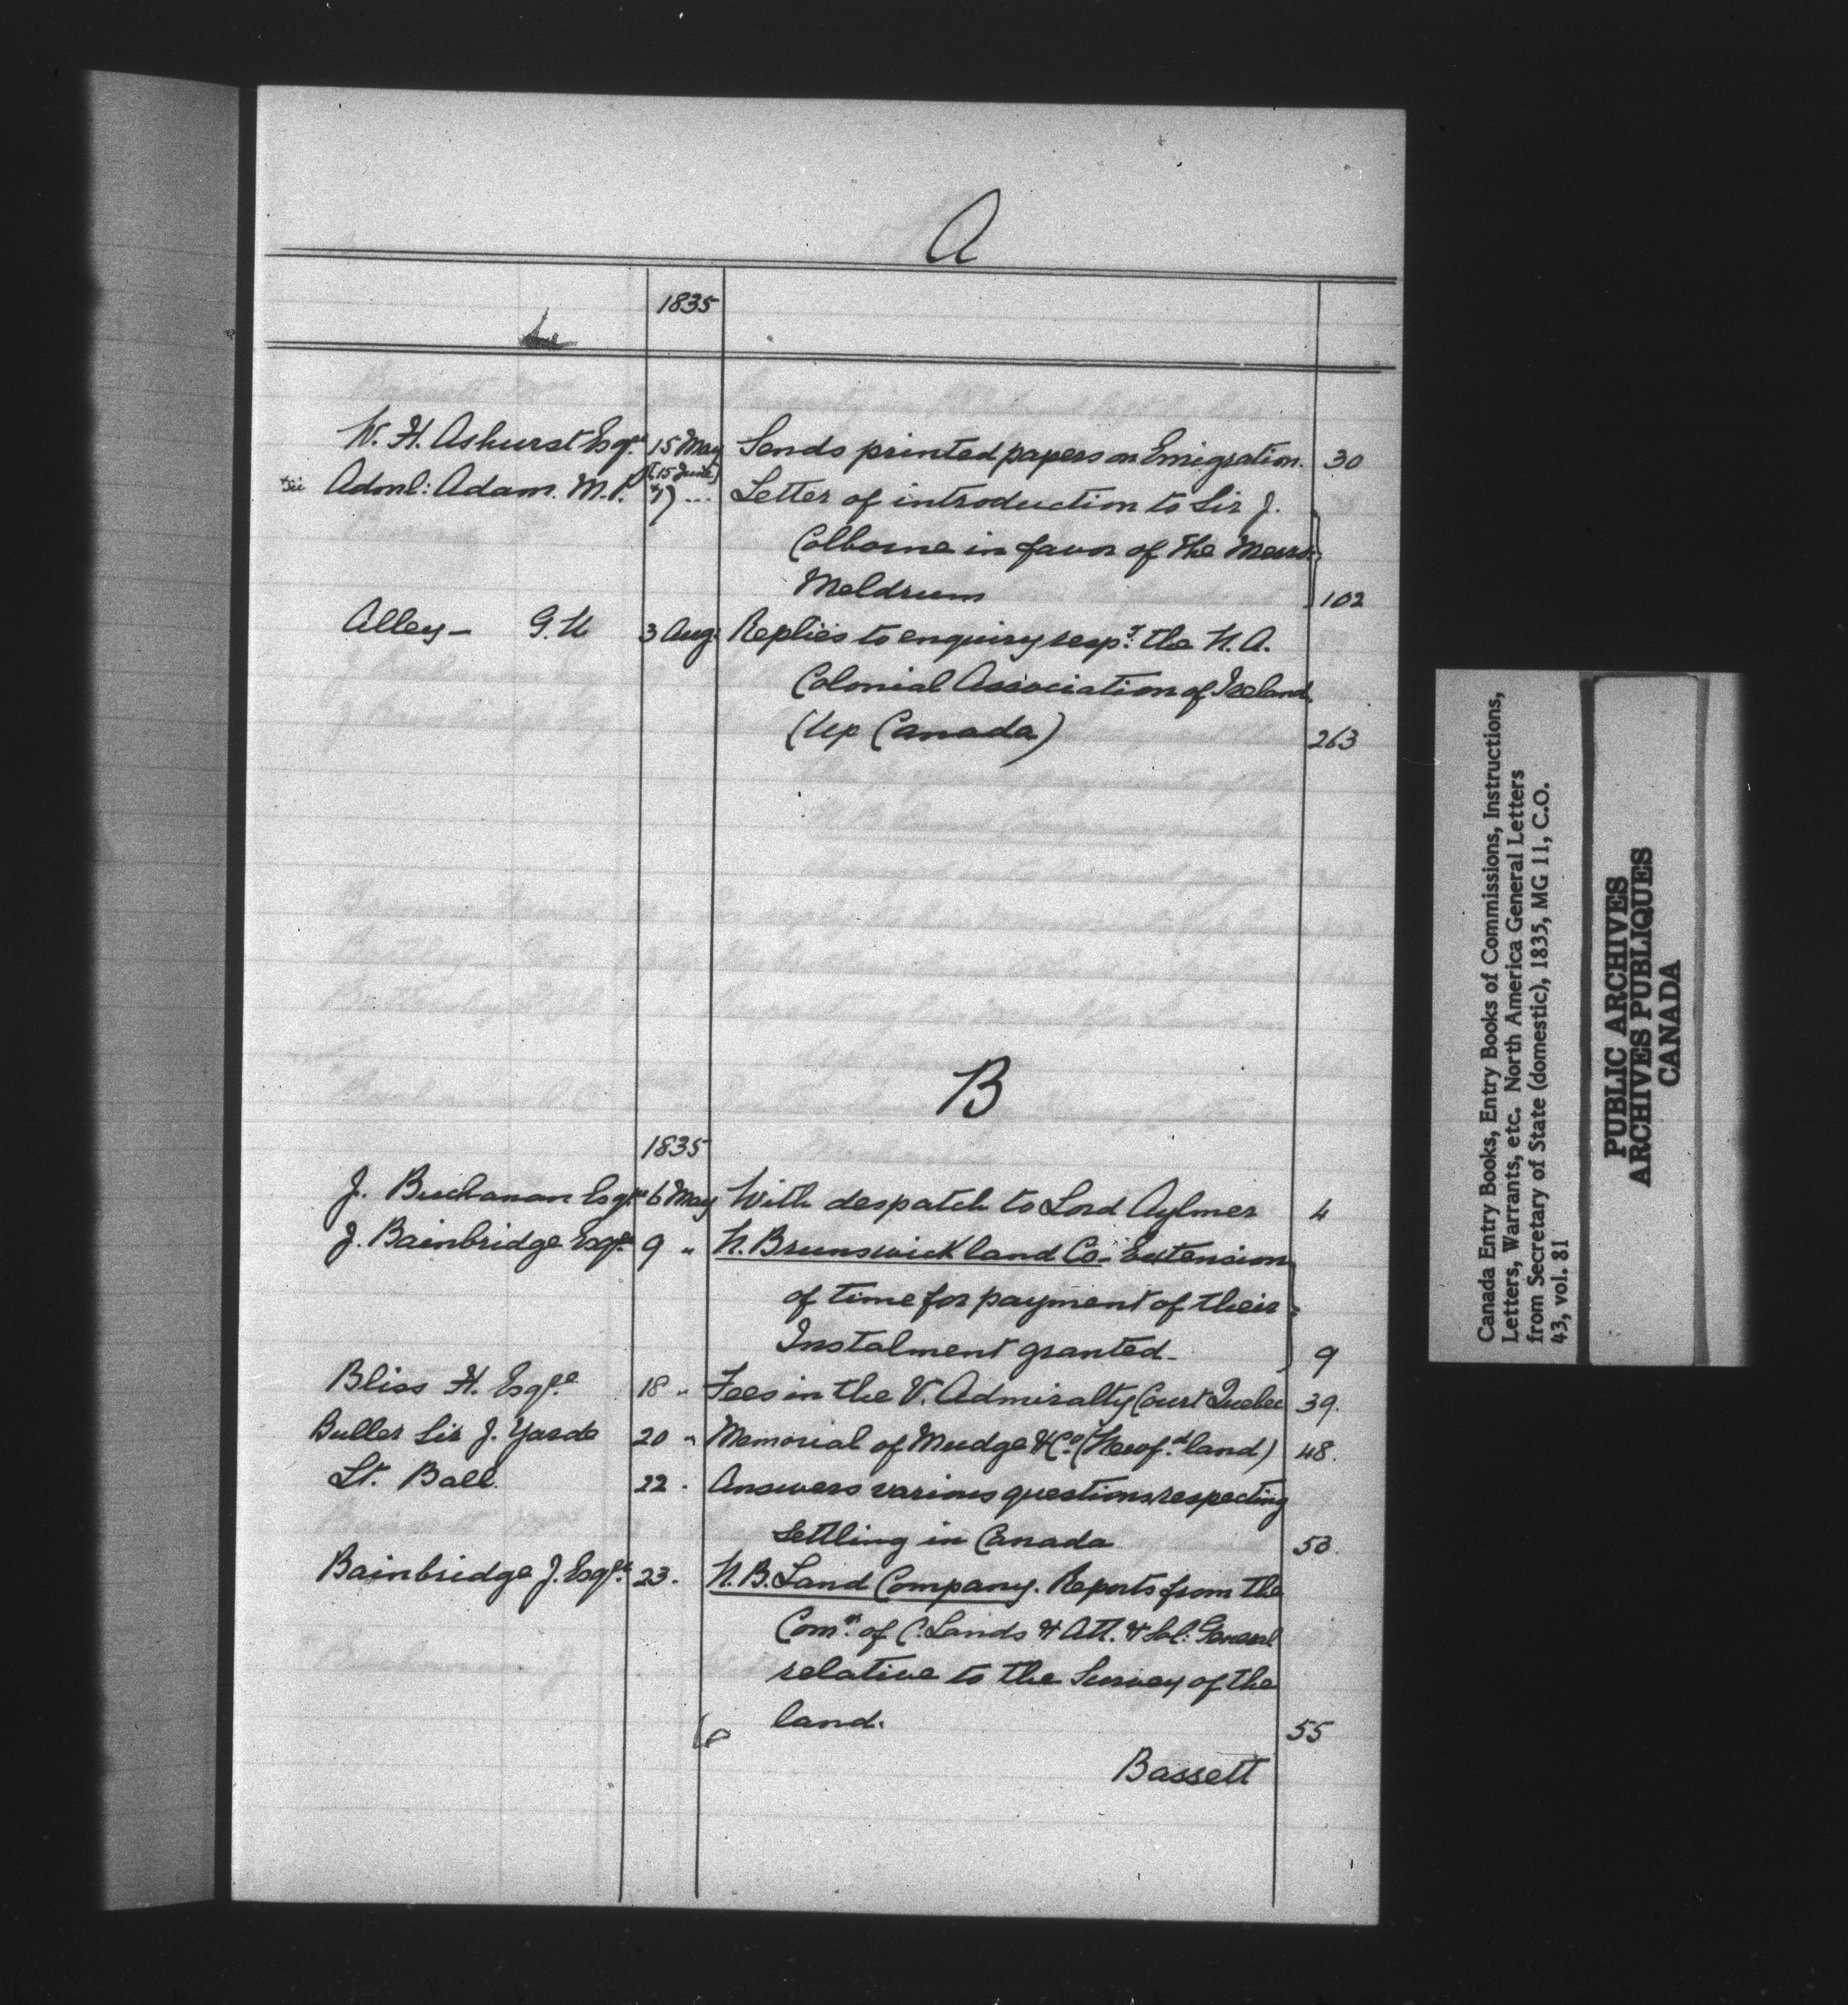 A
1835
W. H. Ashurst Esqre 15 May Sends printed papers on Emigration. 30
[15 June]
Adml: Adam. M.P. 17 ... Letter of introduction to Sir J.
Colborne in favor of the Messrs
Meldrum 102
Alley - G. W 3 Aug: Replies to enquiry respg. the N. A.
Colonial Association of Ireland
(Up Canada) 263
B
1835
J. Buchanan Esqre 6 May With despatch to Lord Aylmer 4
J. Bainbridge Esqre 9 " N. Brunswick land Co- Extension
of time for payment of their
Instalment granted- 9
Bliss H. Esqre 18 " Fees in the V. Admiralty Court Quebec 39.
Buller Sir J. Yarde 20 " Memorial of Mudge & Co. (Newfd.land) 48.
Lt. Ball. 22 . Answers various questions respecting
Settling in Canada 53.
Bainbridge J. Esqre 23. N. B. Land Company. Reports from the
Comr. of C. Lands & Att. & Sol: General
relative to the Survey of the
land. 55
Bassett
Canada Entry Books, Entry Books of Commissions, Instructions,
Letters, Warrants, etc. North America General Letters
from Secretary of State (domestic), 1835, MG 11, C.O.
43, vol. 81
PUBLIC ARCHIVES
ARCHIVES PUBLIQUES
CANADA